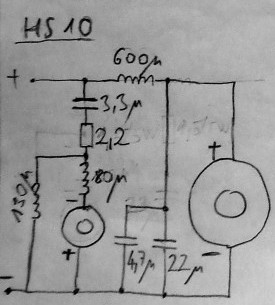 HS 10
600μ
+
3,3μ
2,2
+
130μ
80μ
-
+
4,7μ
22μ
-
-